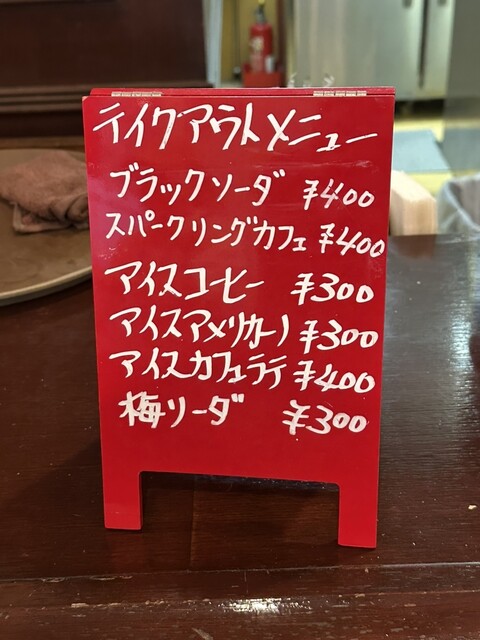 テイクアウトメニュー
ブラックソーダ ¥400
スパークリングカフェ ¥400
アイスコーヒー ¥300
アイスアメリカーノ ¥300
アイスカフェラテ ¥400
梅ソーダ ¥300